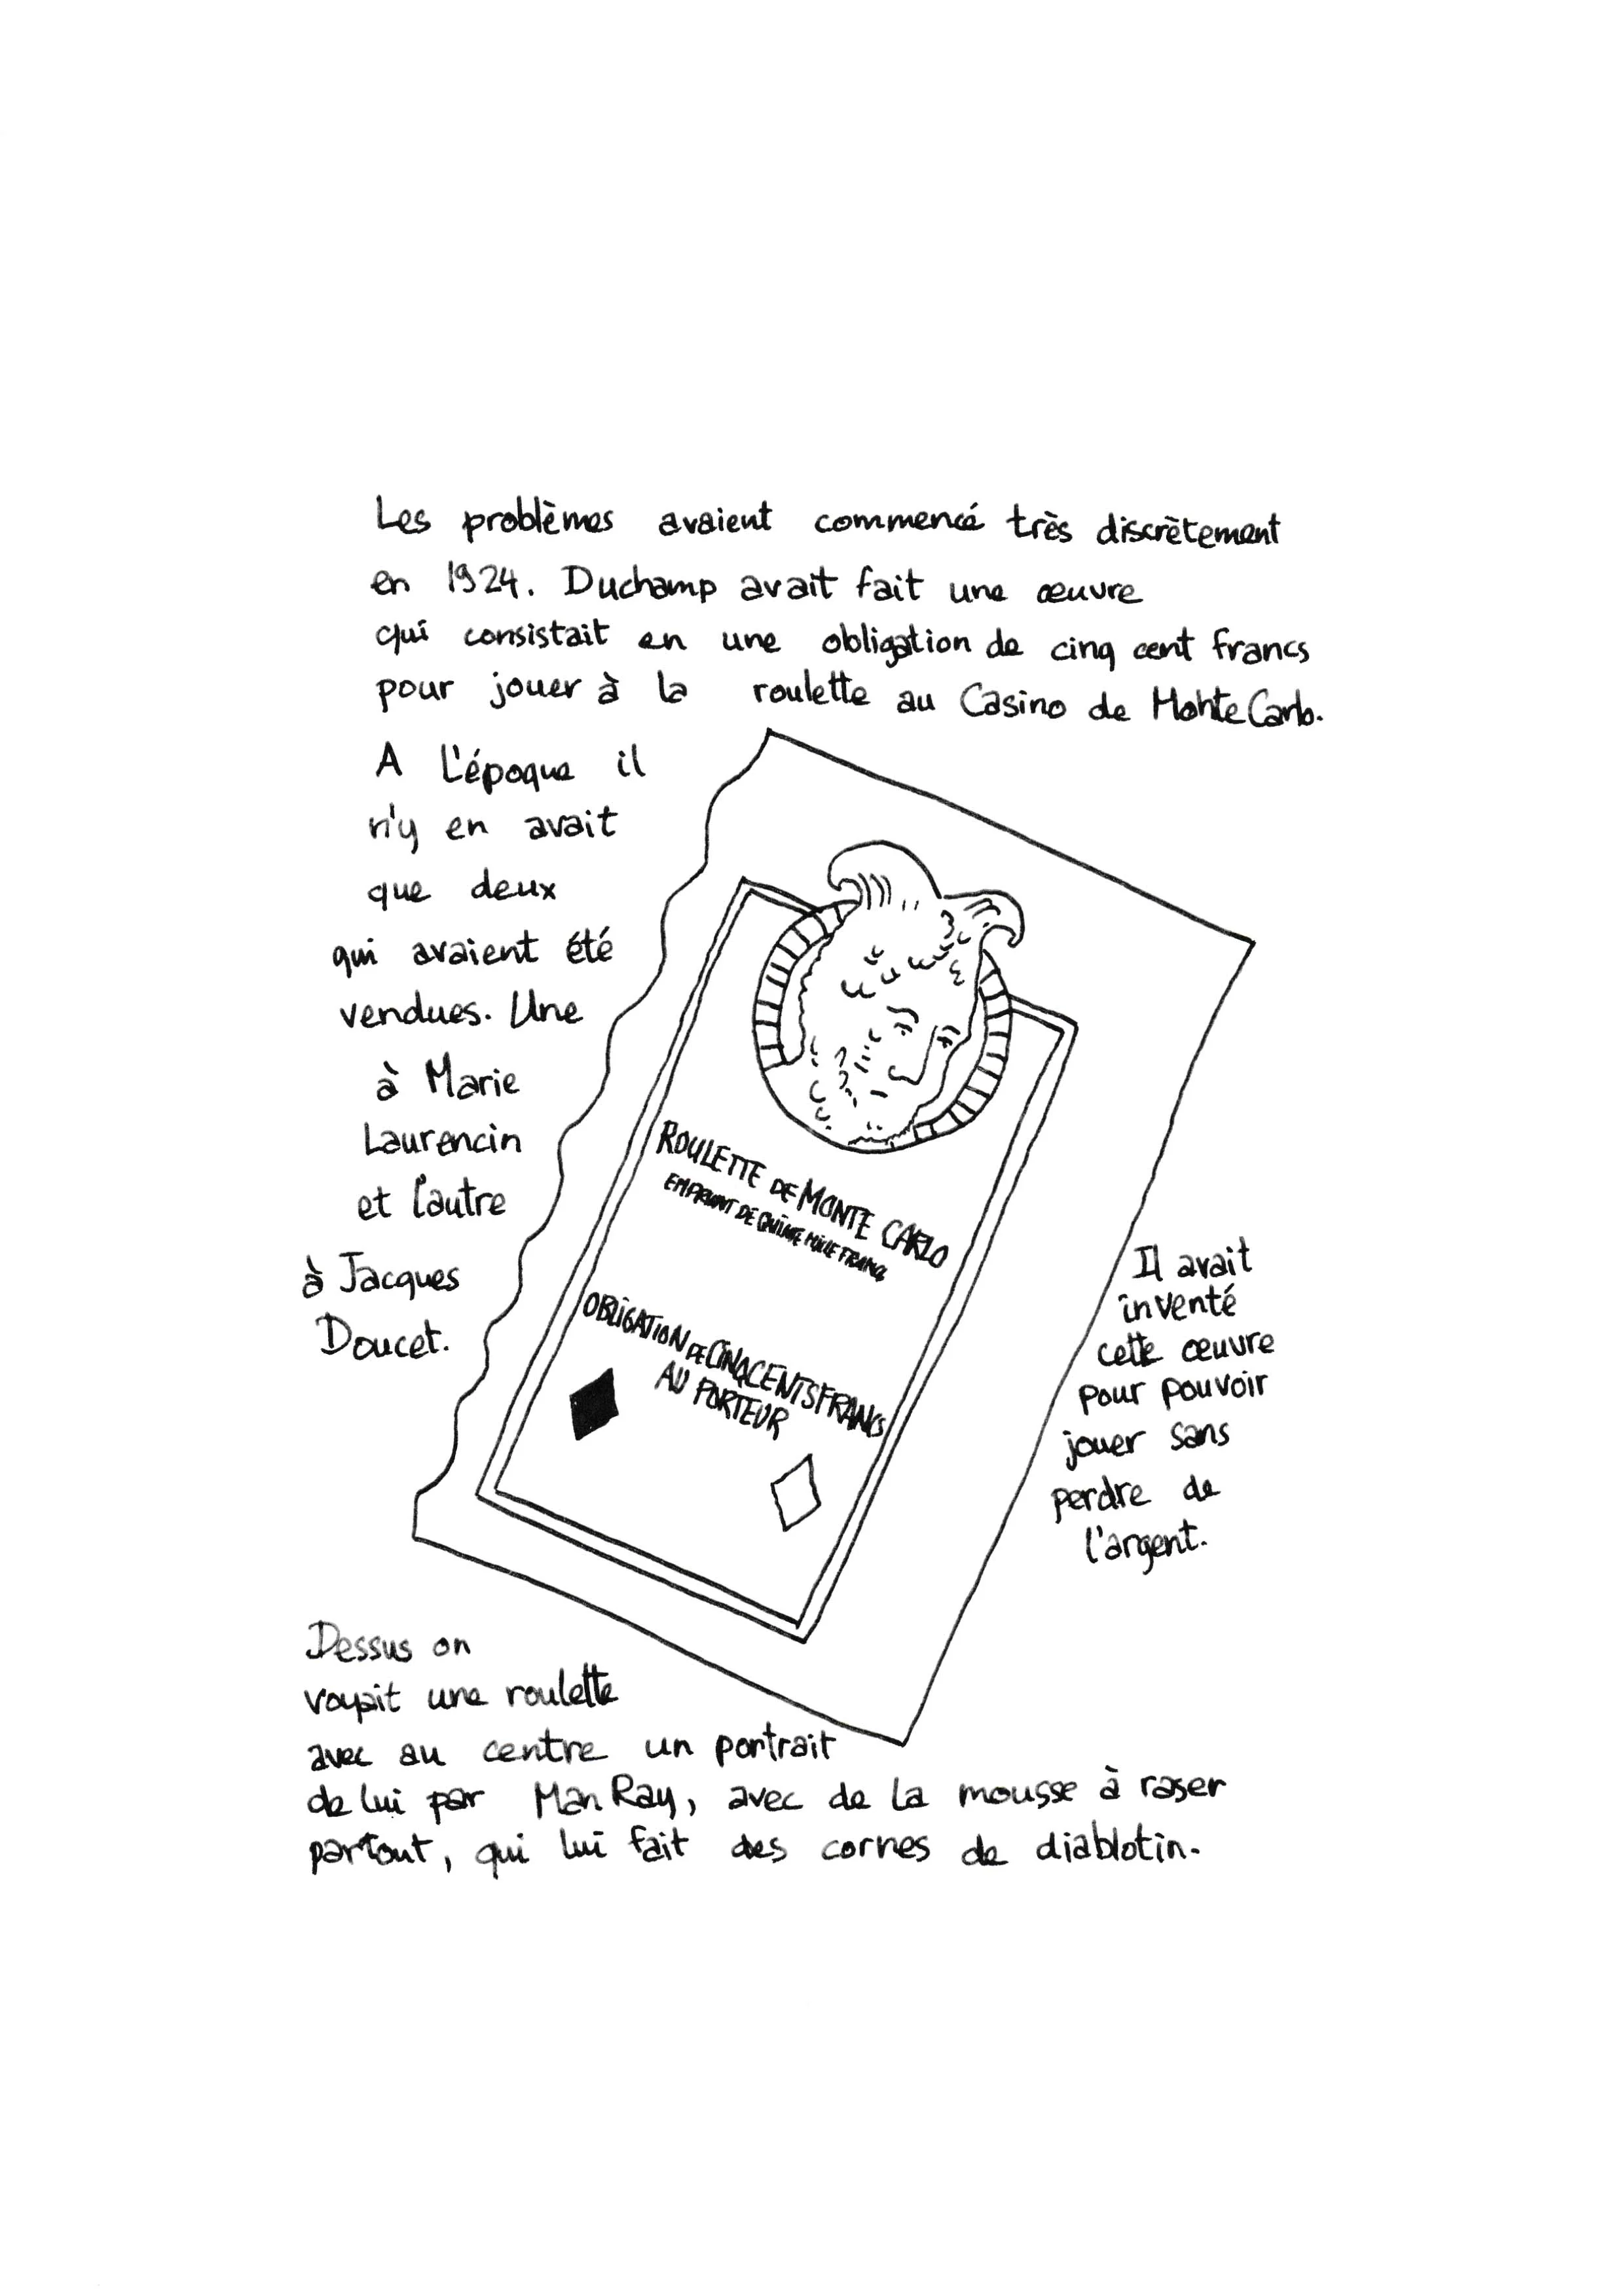 Les problèmes avaient commencé très discrètement
en 1924. Duchamp avait fait une œuvre
qui consistait en une obligation de cinq cent francs
pour jouer à la roulette au Casino de Monte Carlo.
A L'époque il
n'y en avait
que deux
qui avaient été
vendues. Une
à Marie
Laurencin
et l'autre
à Jacques
Doucet.
ROULETTE DE MONTE CARLO
EMPRUNT DE QUINZE MILLE FRANCS
OBLIGATION DE CINQ CENTS FRANCS
AU PORTEUR
Il avait
inventé
cette œuvre
pour pouvoir
jouer sans
perdre de
l'argent.
Dessus on
voyait une roulette
avec au centre un portrait
de lui par Man Ray, avec de la mousse à raser
partout, qui lui fait des cornes de diablotin.